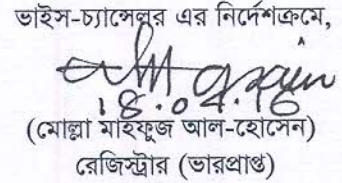 ভাইস-চ্যান্সেলর এর নির্দেশক্রমে,
18.04.16
(মোল্লা মাহফুজ আল-হোসেন)
রেজিস্ট্রার (ভারপ্রাপ্ত)